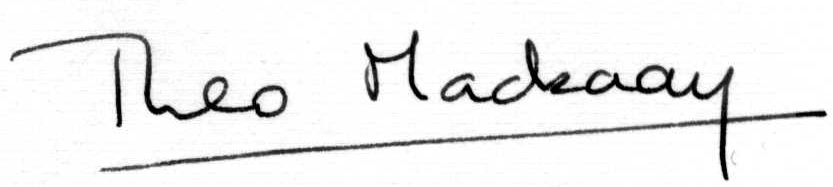 Theo Mackaay